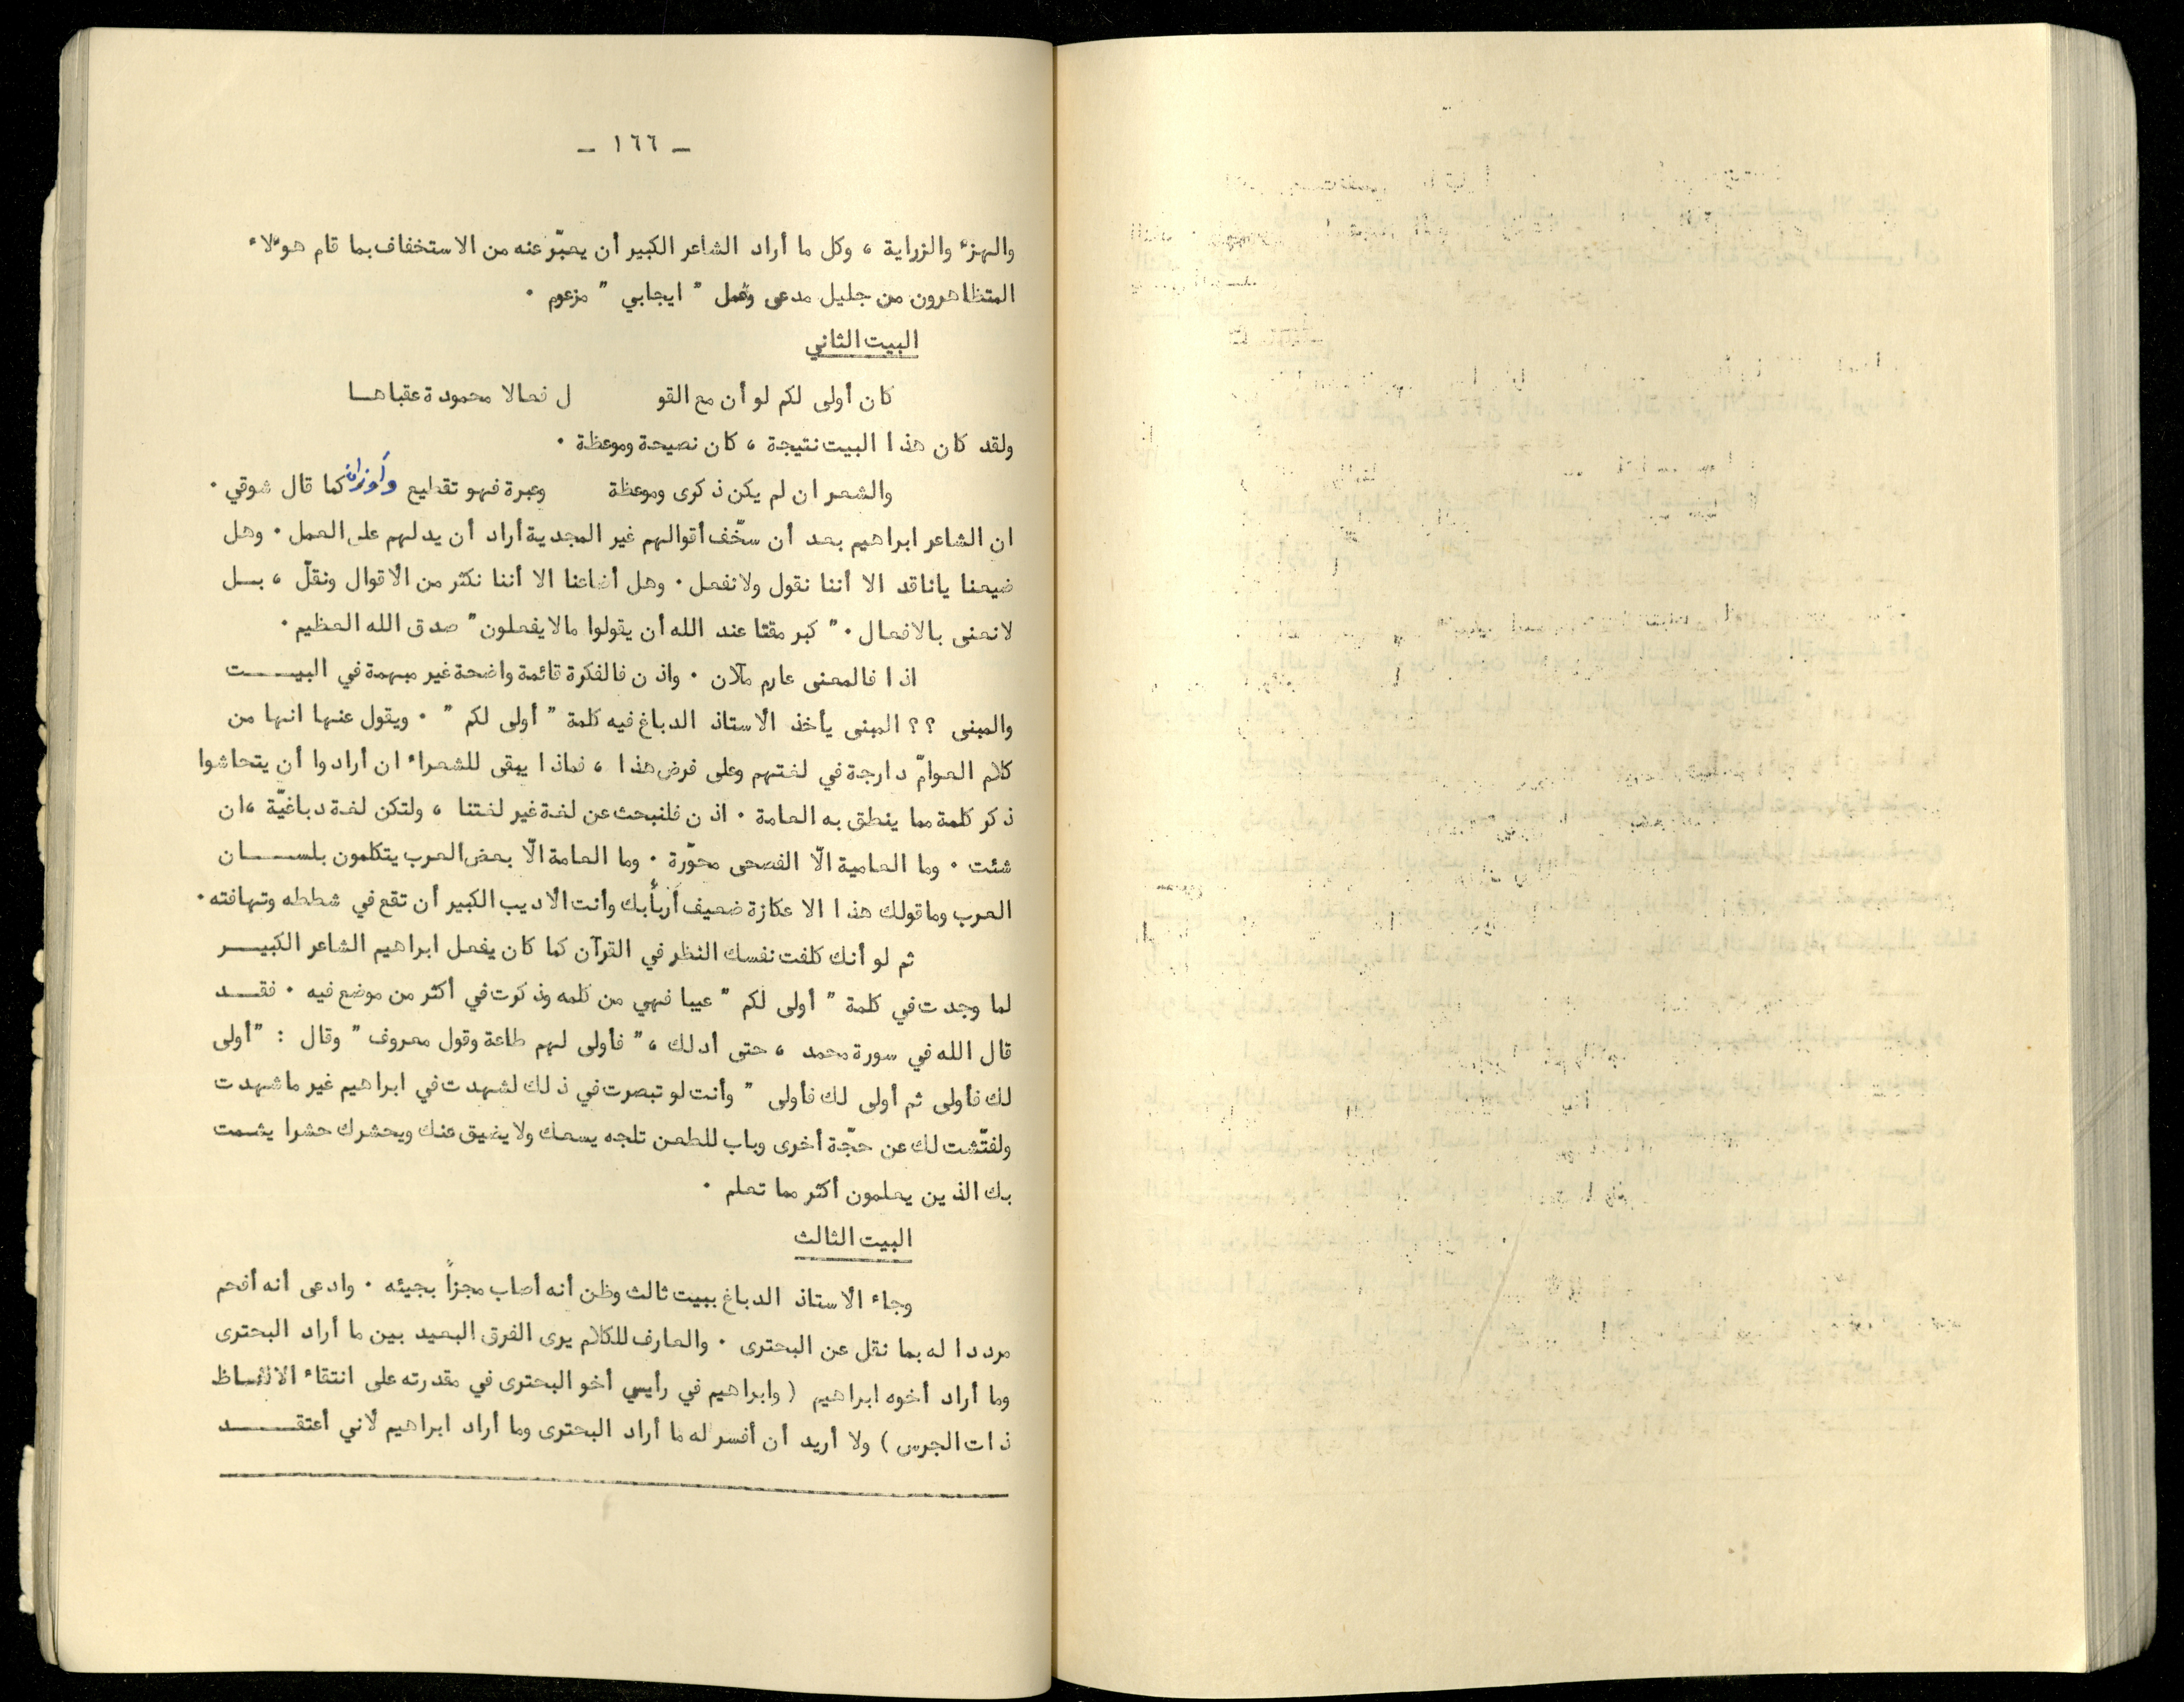 - ١٦٦ -
والهزء والزراية ، وكل ما أراد الشاعر الكبير أن يعبّر عنه من الاستخفاف بما قام هؤلاء
المتظاهرون من جليل مدعى وعمل " ايجابي " مزعوم ٠
البيت الثاني
كان أولى لكم لو أن مع القو ل فعالا محمودة عقباهـا
ولقد كان هذا البيت نتيجة ، كان نصيحة وموعظة ٠
والشعر ان لم يكن ذكرى وموعظة وعبرة فهو تقطيع وأوزان كما قال شوقي ٠
ان الشاعر ابراهيم بعد أن سخّف أقوالهم غير المجدية أراد أن يدلهم على العمل ٠ وهل
ضيعنا ياناقد الا أننا نقول ولانفعل ٠ وهل أضاعنا الا أننا نكثر من الأقوال ونقلّ ، بـل
لانعنى بالافعال ٠ " كبر مقتا عند الله أن يقولوا مالايفعلون " صدق الله العظيم ٠
اذا فالمعنى عارم ملآن ٠ واذن فالفكرة قائمة واضحة غير مبهمة في البيـــت
والمبنى ؟؟ المبنى يأخذ الأستاذ الدباغ فيه كلمة " أولى لكم " ٠ ويقول عنها انها من
كلام العوامّ دارجة في لغتهم وعلى فرض هذا ، فماذا يبقى للشعراء ان أرادوا أن يتحاشوا
ذكر كلمة مما ينطق به العامة ٠ اذن فلنبحث عن لغة غير لغتنا ، ولتكن لغة دباغيّة ،ان
شئت ٠ وما العامية الّا الفصحى محوّرة ٠ وما العامة الّا بعض العرب يتكلمون بلســـان
العرب وماقولك هذا الا عكازة ضعيف أربأ بك وأنت الأديب الكبير أن تقع في شططه وتهافته ٠
ثم لو أنك كلفت نفسك النظر في القرآن كما كان يفعل ابراهيم الشاعر الكبيــر
لما وجدت في كلمة " أولى لكم " عيبا فهي من كلمه وذكرت في أكثر من موضع فيه ٠ فقــد
قال الله في سورة محمد ، حتى أدلك ، " فأولى لهم طاعة وقول معروف " وقال : "أولى
لك فأولى ثم أولى لك فأولى " وأنت لو تبصرت في ذلك لشهدت في ابراهيم غير ماشهدت
ولفتّشت لك عن حجّة أخرى وباب للطعن تلجه يسعك ولايضيق عنك ويحشرك حشرا يشمت
بك الذين يعلمون أكثر مما تعلم ٠
البيت الثالث
وجاء الأستاذ الدباغ ببيت ثالث وظن أنه أصاب مجزأً بجيئه ٠ وادعى أنه أفحم
مرددا له بما نقل عن البحترى ٠ والعارف للكلام يرى الفرق البعيد بين ما أراد البحترى
وما أراد أخوه ابراهيم ( وابراهيم في رأيي أخو البحترى في مقدرته على انتقاء الالفـاظ
ذات الجرس ) ولا أريد أن أفسر له ما أراد البحترى وما أراد ابراهيم لأني أعتقــــد